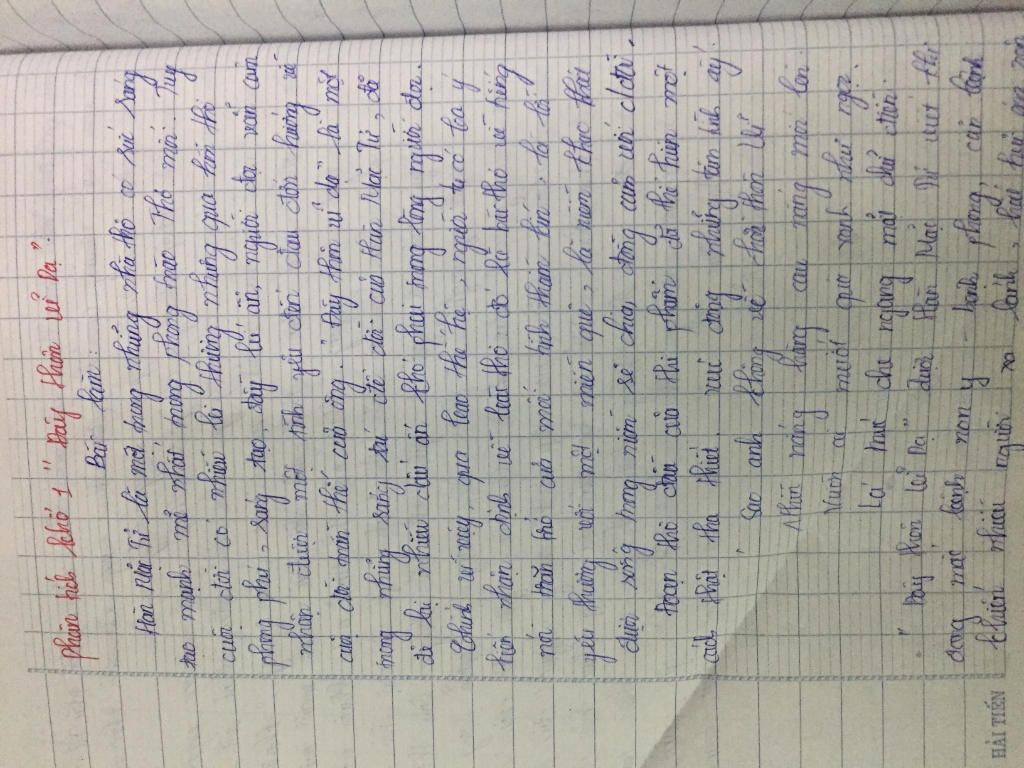 phân tích khổ 1 "Đây thôn vĩ Dạ".
Bài làm:
Hàn Mặc Tử là một trong những nhà thơ có sức sáng
tạo mạnh mẽ nhất trong phong trào Thơ mới. Tuy
cuộc đời có nhiều bi thương nhưng qua hồn thơ
phong phú, sáng tạo, đầy bí ẩn, người đọc vẫn cảm
nhận được một tình yêu đến đau đớn hướng về
cuộc đời trần thế của ông. "Đây thôn vĩ dạ" là một
trong những sáng tác để đời của Hàn Mặc Tử, đã
để lại nhiều dấu ấn khó phai trong lòng người đọc.
Chính vì vậy, qua bao thế hệ, người ta có ý
kiến nhận định về bài thơ đó là bài thơ về tiếng
nói trong trẻo của một hình thần khổ, là lời
yêu thương với một miền quê, là niềm thao thức
được sống trong niềm sẻ chia, đồng cảm với cuộc đời.
Đoạn thơ đầu của thi phẩm đã thể hiện một
cách thật tha thiết, xúc động những tâm tình ấy.
"Sao anh không về chơi thôn Vĩ
Nhìn nắng hàng cau nắng mới lên
Vườn ai mướt quá xanh như ngọc
Lá trúc che ngang mặt chữ điền"
"Đây thôn Vĩ Dạ" được Hàn Mặc Tử viết khi
đang mắc bệnh nan y - bệnh phong, căn bệnh
khiến nhiều người xa lánh,
HẢI TIẾN